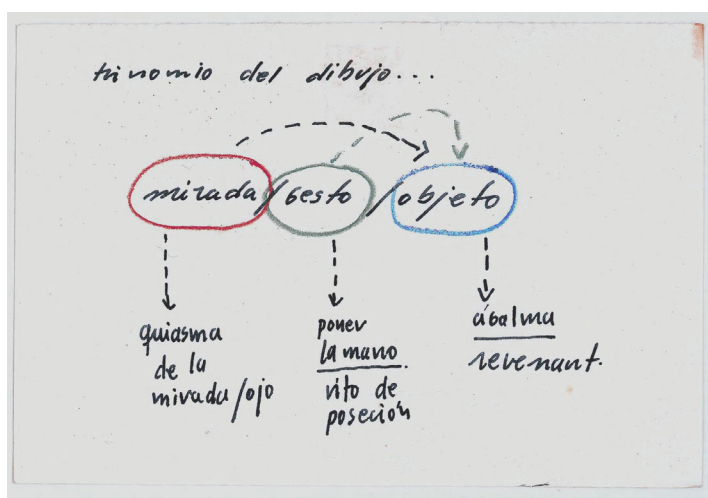 trinomio del dibujo...
mirada/gesto/objeto
quiasma
de la
mirada/ojo
poner
la mano
rito de
poseción
ágalma
revenant.